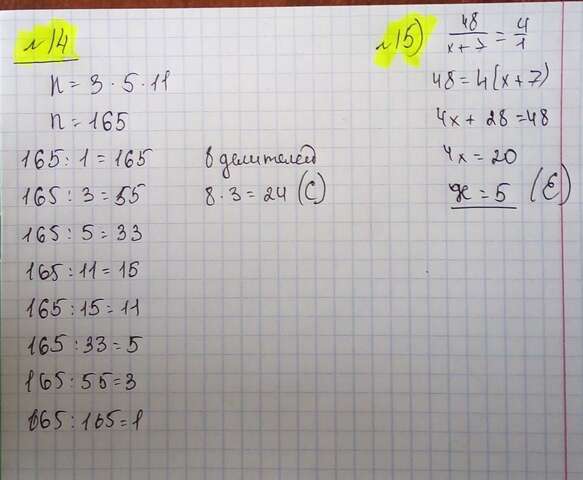 №14
n = 3 · 5 · 11
n = 165
165 : 1 = 165
165 : 3 = 55
165 : 5 = 33
165 : 11 = 15
165 : 15 = 11
165 : 33 = 5
165 : 55 = 3
165 : 165 = 1
8 делителей
8 · 3 = 24 (C)
№15)
48/x+7 = 4/1
48 = 4(x+7)
4x + 28 = 48
4x = 20
x = 5 (E)